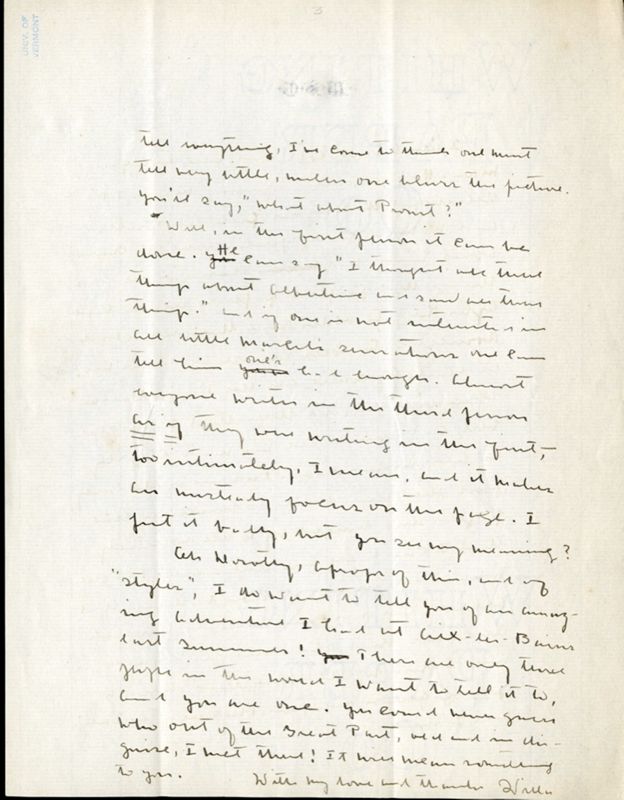 3
UNIV. OF
VERMONT
tell everything, I've come to think one must
tell very little, unless one blurs the picture.
You'll say, "what about Proust?"
Well, in the first person it can be
done. He can say "I thought all these
things about Albertine and said all those
things." and if one is not interested in
all little Marcel's sensations one can
tell him one's had enough. Almost
everyone writes in the third person
as if they were writing in the first,
too intimately, I mean, and it makes
an unsteady focus on the page. I
put it badly, but you see my meaning?
Ah Dorothy, apropos of this, and of
"styles", I do want to tell you of an amaz-
ing adventure I had at Aix-les-Bains
last summer! There are only three
people in the world I want to tell it to,
and you are one. You could never guess
who out of the Great Past, old and in dis-
guise, I met there! It will mean something
to you.
With my love and thanks Willa